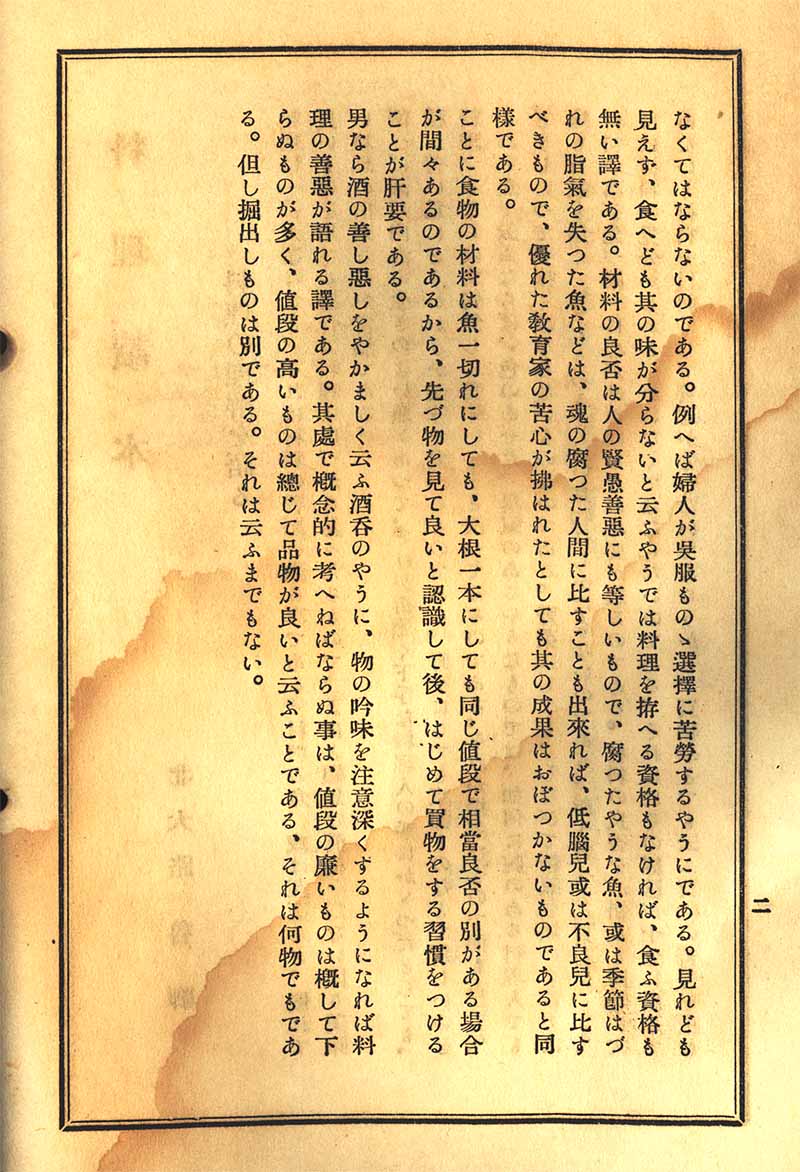 なくてはならないのである。例へば婦人が吳服ものゝ選擇に苦勞するやうにである。見れども
見えず、食へども其の味が分らないと云ふやうでは料理を拵へる資格もなければ、食ふ資格も
無い譯である。材料の良否は人の賢愚善惡にも等しいもので、腐つたやうな魚、或は季節はづ
れの脂氣を失つた魚などは、魂の腐つた人間に比すことも出來れば、低腦兒或は不良兒に比す
べきもので、優れた敎育家の苦心が拂はれたとしても其の成果はおぼつかないものであると同
樣である。
ことに食物の材料は魚一切れにしても、大根一本にしても同じ値段で相當良否の別がある場合
が間々あるのであるから、先づ物を見て良いと認識して後、はじめて買物をする習慣をつける
ことが肝要である。
男なら酒の善し惡しをやかましく云ふ酒呑のやうに、物の吟味を注意深くするようになれば料
理の善惡が語れる譯である。其處で槪念的に考へねばならぬ事は、値段の廉いものは槪して下
らぬものが多く、値段の高いものは總じて品物が良いと云ふことである、それは何物でもであ
る。但し掘出しものは別である。それは云ふまでもない。
二